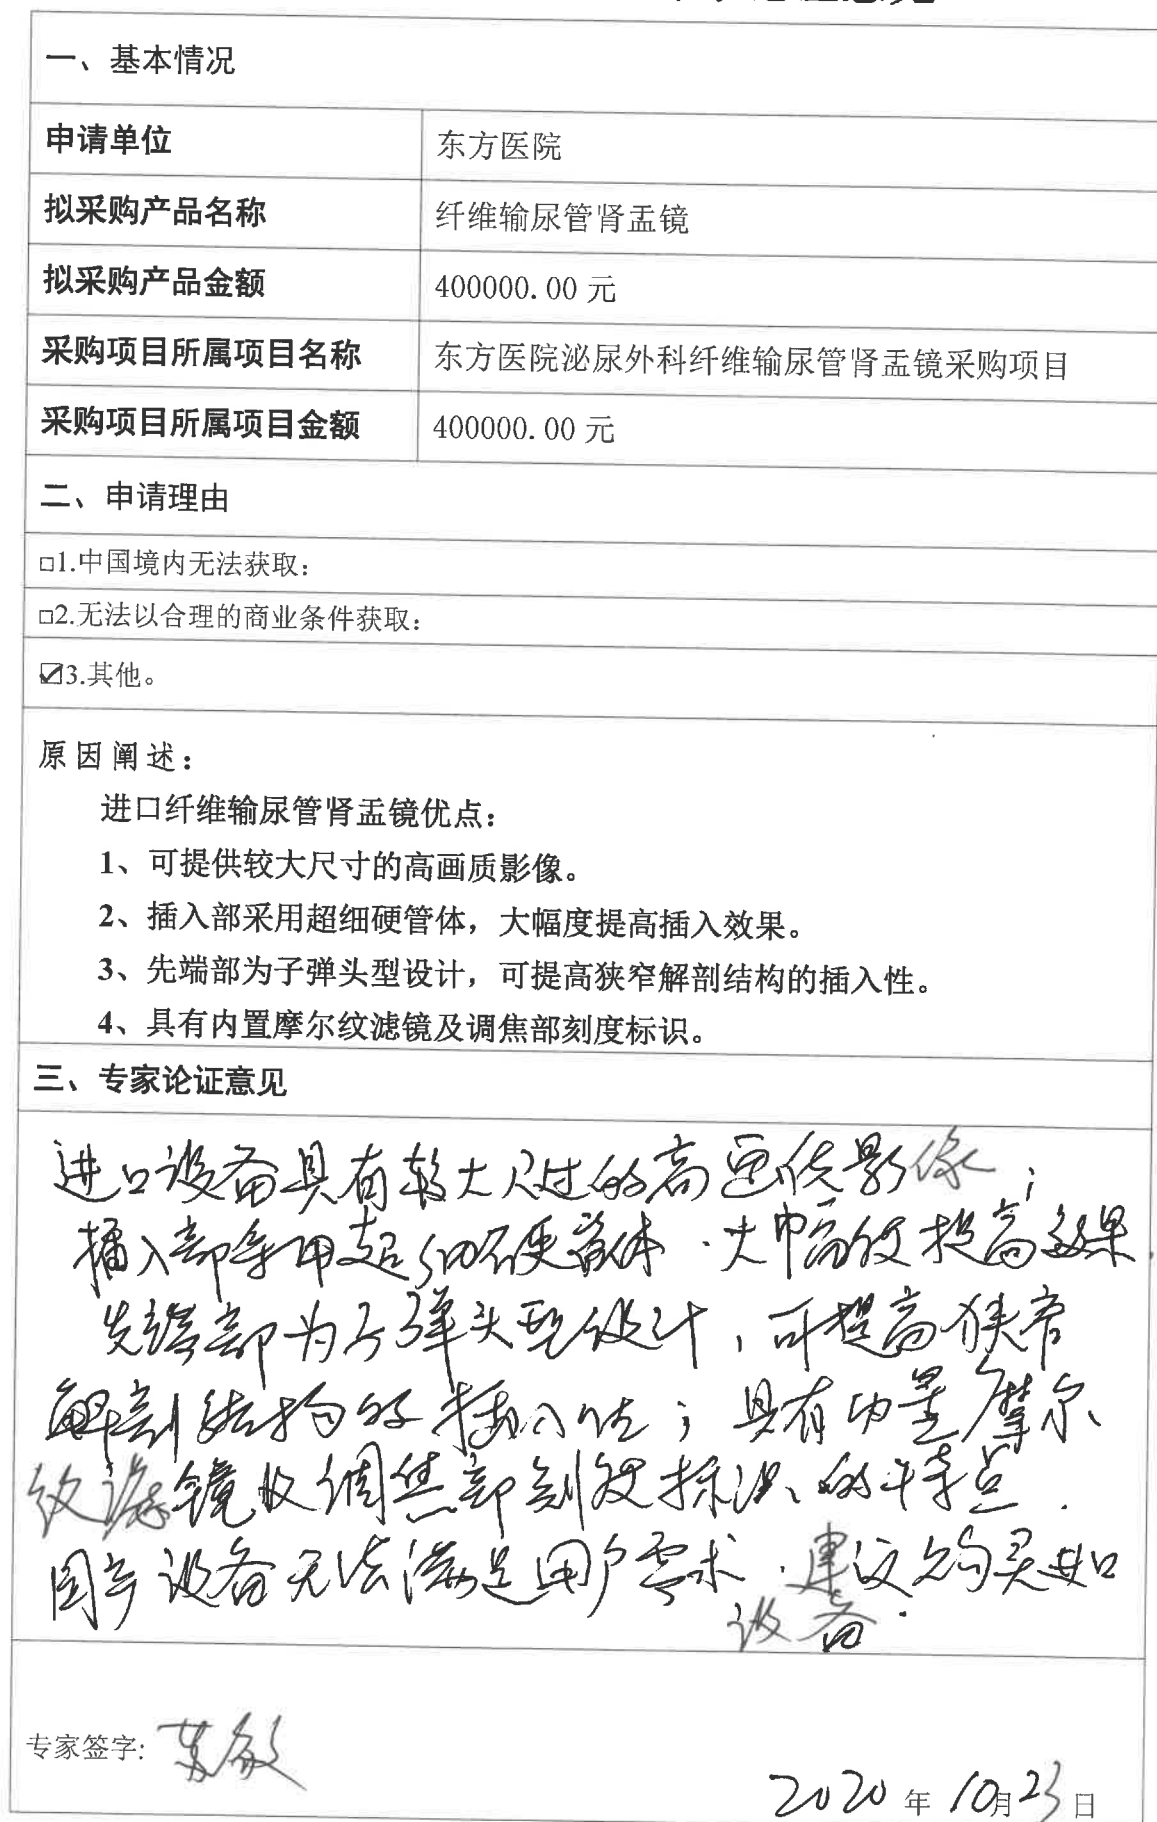 一、基本情况
申请单位 东方医院
拟采购产品名称 纤维输尿管肾盂镜
拟采购产品金额 400000.00 元
采购项目所属项目名称 东方医院泌尿外科纤维输尿管肾盂镜采购项目
采购项目所属项目金额 400000.00 元
二、申请理由
□1.中国境内无法获取：
□2.无法以合理的商业条件获取：
☑3.其他。
原因阐述：
进口纤维输尿管肾盂镜优点：
1、可提供较大尺寸的高画质影像。
2、插入部采用超细硬管体，大幅度提高插入效果。
3、先端部为子弹头型设计，可提高狭窄解剖结构的插入性。
4、具有内置摩尔纹滤镜及调焦部刻度标识。
三、专家论证意见
进口设备具有较大尺寸的高画质影像；
插入部采用超细硬管体．大幅度提高效果．
先端部为子弹头型设计，可提高狭窄
解剖结构的插入性；具有内置摩尔
纹滤镜及调焦部刻度标识的特点．
国产设备无法满足用户需求．建议购买进口
设备．
专家签字:
2020 年 10月23日